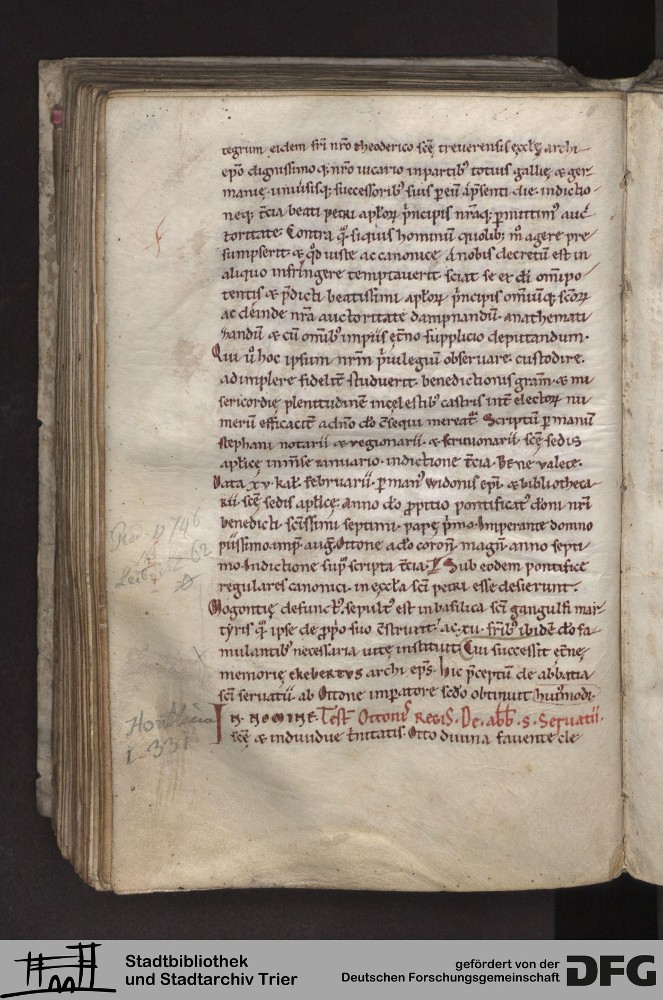 tegrum eidem fr̄i nr̄o theoderico scę̄ treverensis ęccłę archi
ep̄o dignissimo q; nr̄o vicario in partib; totius gallię & ger
manię. unius q; successorib; suis p eū a p̄senti die. indictio
neq; t̄cia beati petri apłoꝝ p̄ncipis nr̄aq; pmittim᷒ auc
toritate. Contra q̊. siquis hominū quolib; m̊ agere pre
sumpserit. & qd iuste ac canonice a nobis decretū est in
aliquo infringere temptaverit. sciat se ex di om̄ipo
tentis & p̄dicti beatissimi apłoꝝ p̄ncipis om̄iūq; scoꝝ
ac deinde nr̄a auctoritate dampnandū. anathemati
handū & cū om̄ib; impiis et̄no supplicio deputandum.
Qui ů hoc ipsum nr̄m p̄uilegiū observare. custodire.
ad implere fidelit̄ studuerit. benedictionis grām & mi
sericordię plenitudinē in cęlestib; castris int̄ electoꝝ nu
merū efficacit̄ a dn̄o dō c̄sequi mereat᷑. Scriptū p manū
stephani notarii & regionarii. & scriniarii scę̄ sedis
apłicę in m̄se ianuario. indictione t̄cia. Bene valete.
Data xv. kał. februarii. p man᷒ widonis ep̄i & bibliotheca
rii scę̄ sedis apłicę. anno dō ppitio pontificat᷒ dōni nr̄i
benedicti. sc̄issimi septimi. papę p̄mo. Imperante domno
piissimo imp̄. aug̅. Ottone a dō coron̄. magn̄. anno septi
mo. Indictione sup̄ scripta t̄cia. Sub eodem pontifice
regulares canonici. in ęccła sc̄i petri esse desierunt.
Mogontię defunct᷒. sepult᷒ est in basilica sc̄i gangulfi mar
tyris. q̄ ipse de pp̄o suo c̄struxit. ac. xii. frib; ibidē dō fa
mulantib; necessaria vitę instituit. Cui successit et̄nę
memorię ekebertvs archi ep̄s. hic p̄ceptū de abbatia
sc̄i servatii. ab Ottone impatore sedo obtinuit. hui᷒modi.
In nomine. Test̄ Ottonis Regis. De. abb̄. S. Servatii.
scę̄ & individuę t̄nitatis. Otto divina favente cle
1746
62
Hontheim
1. 331
Stadtbibliothek
und Stadtarchiv Trier
gefördert von der
Deutschen Forschungsgemeinschaft
DFG